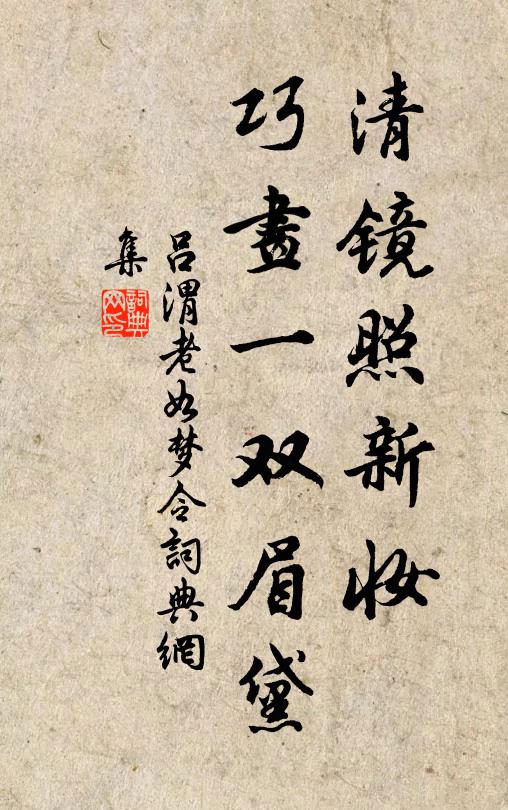 清镜照新妆
巧畫一双眉黛
吕渭老如梦令詞典網
集
詞典网印